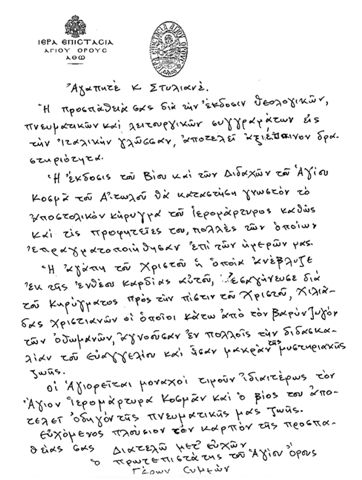 ΙΕΡΑ ΕΠΙΣΤΑΣΙΑ
ΑΓΙΟΥ ΟΡΟΥΣ
ΑΘΩ
Ἀγαπητὲ κ Στυλιανέ.
Ἡ προσπάθειά σας διὰ τὴν ἔκδοσιν θεολογικῶν,
πνευματικῶν καὶ λειτουργικῶν συγγραμάτων εἰς
τὴν ἰταλικὴν γλῶσσαν, ἀποτελεῖ ἀξιέπαινον δρα-
στηριότητα.
Ἡ ἔκδοσις τοῦ Βίου καὶ τῶν Διδαχῶν τοῦ Ἁγίου
Κοσμᾶ τοῦ Αἰτωλοῦ θὰ καταστήση γνωστὸν τὸ
ἀποστολικὸν κήρυγμα τοῦ Ἱερομάρτυρος καθὼς
καὶ τὶς προφητεῖες του, πολλὲς τῶν ὁποίων
ἐπραγματοποιήθησαν ἐπὶ τῶν ἡμερῶν μας.
Ἡ ἀγάπη τοῦ Χριστοῦ ἡ ὁποία ἀνέβλυζε
ἐκ τῆς ἐνθέου καρδίας αὐτοῦ, ἐσαγήνευσε διὰ
τοῦ κηρύγματος πρὸς τὴν πίστιν τοῦ Χριστοῦ, χιλιά-
δας Χριστιανῶν οἱ ὁποῖοι κάτω ἀπὸ τὸν βαρὺν ζυγὸν
τῶν ὀθωμανῶν, ἀγνοῦσαν ἐν πολλοῖς τὴν διδασκα-
λίαν τοῦ Εὐαγγελίου καὶ ἦσαν μακρὰν τῆς μυστηριακῆς
ζωῆς.
Οἱ Ἁγιορεῖται μοναχοὶ τιμοῦν ἰδιαιτέρως τὸν
Ἅγιον Ἱερομάρτυρα Κοσμᾶν καὶ ὁ βίος του ἀπο-
τελεῖ ὁδηγὸν τῆς πνευματικῆς μας ζωῆς.
Εὐχόμενος πλούσιον τὸν καρπὸν τῆς προσπα-
θείας σας Διατελῶ μετ' εὐχῶν
ὁ πρωτεπιστάτης τοῦ Ἁγίου Ὄρους
Γέρων Συμεὼν